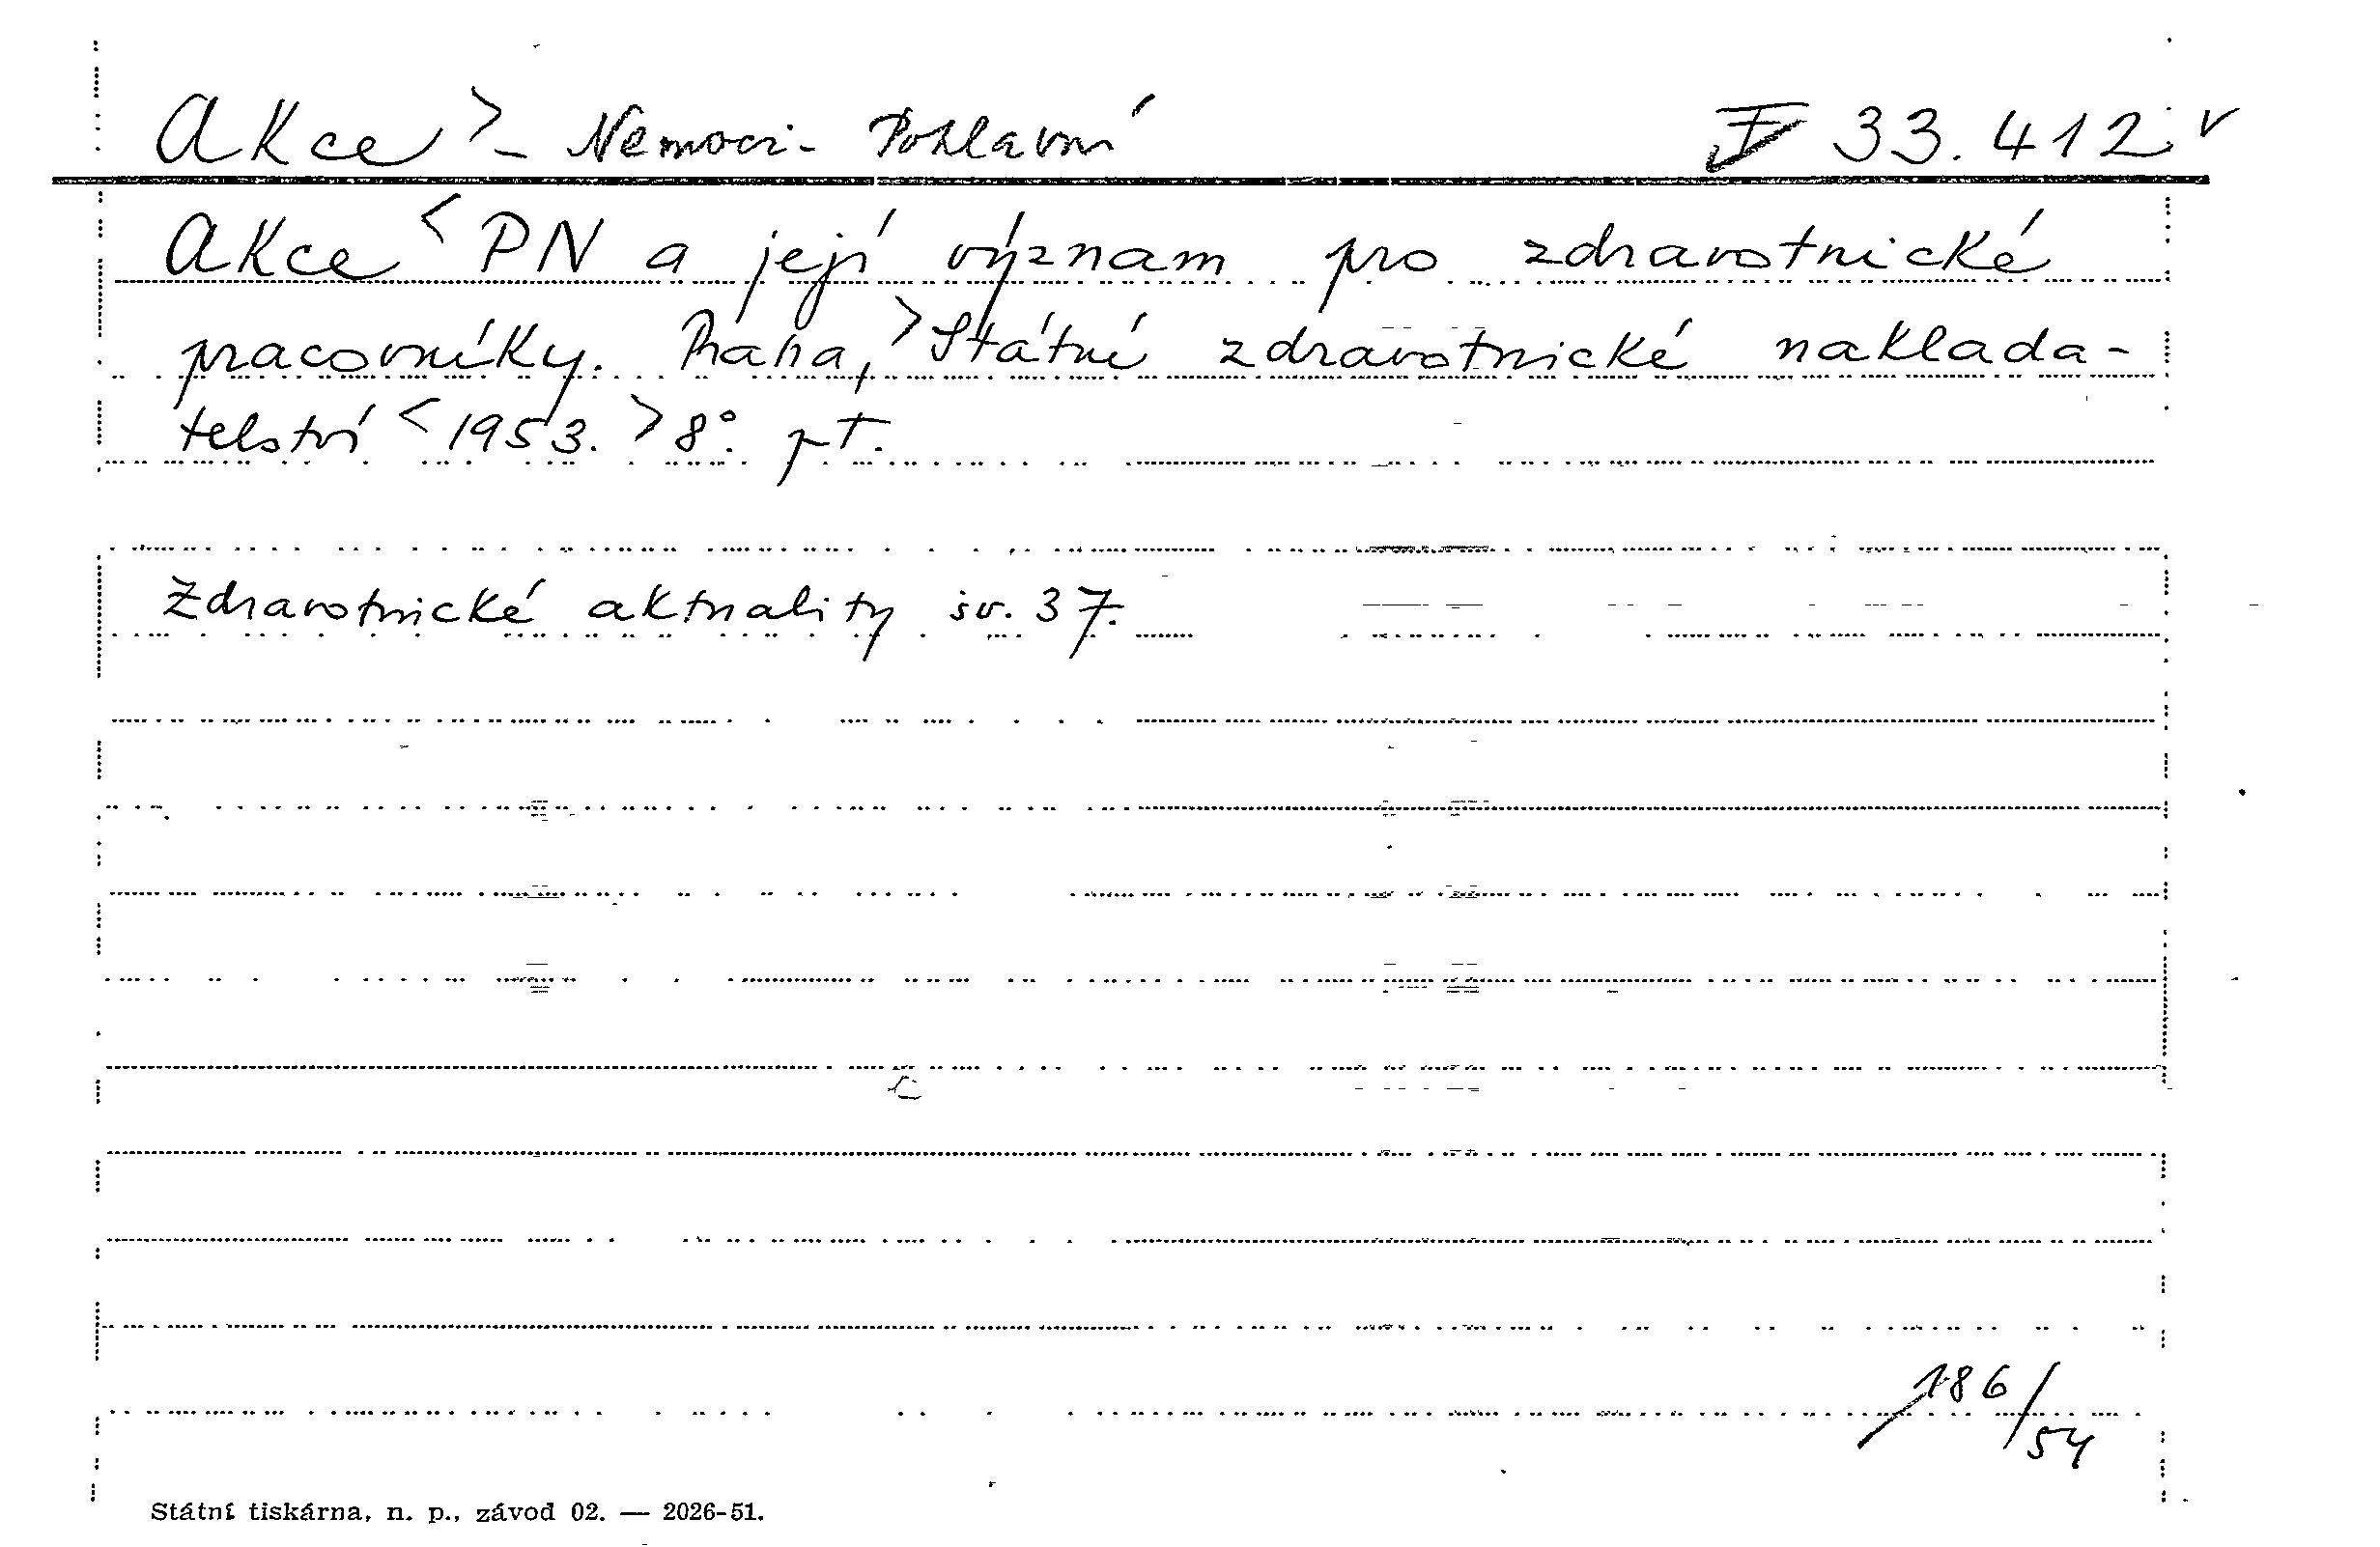 Akce > - Nemoci - Pohlavní 33.412 v
Akce < PN a její význam pro zdravotnické
pracovníky. Praha, > Státní zdravotnické naklada-
telství < 1953. > 8°. pt.
Zdravotnické aktuality sv. 37.
186/54
Státní tiskárna, n. p., závod 02. — 2026-51.